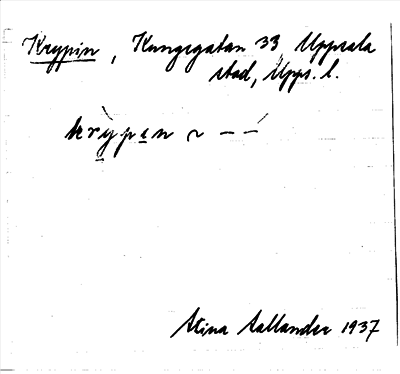 Krypin, Kungsgatan 33 Uppsala
stad, Upps. l.
krỳpan ~ – –́
Stina Sallander 1937